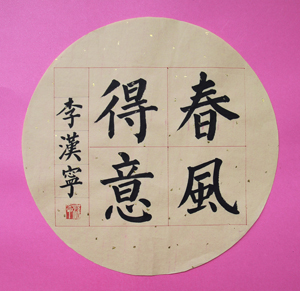 春風
得意
李漢寧